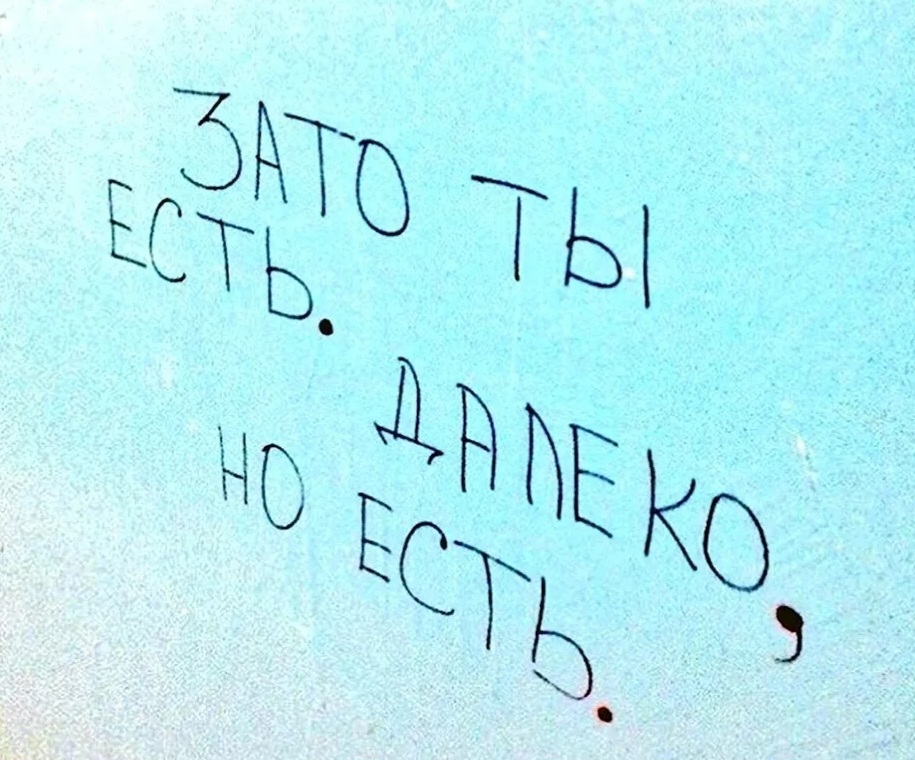 ЗАТО ТЫ
ЕСТЬ.
ДАЛЕКО,
НО ЕСТЬ.